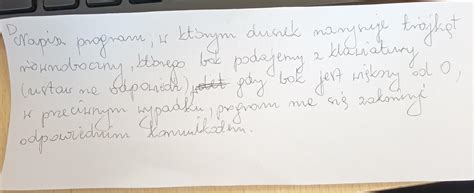 Napisz program, w którym duszek narysuje trójkąt
równoboczny, którego bok podajemy z klawiatury
(ustaw na odpowiedź), gdy bok jest większy od 0,
w przeciwnym wypadku, program ma się zakończyć
odpowiednim komunikatem.